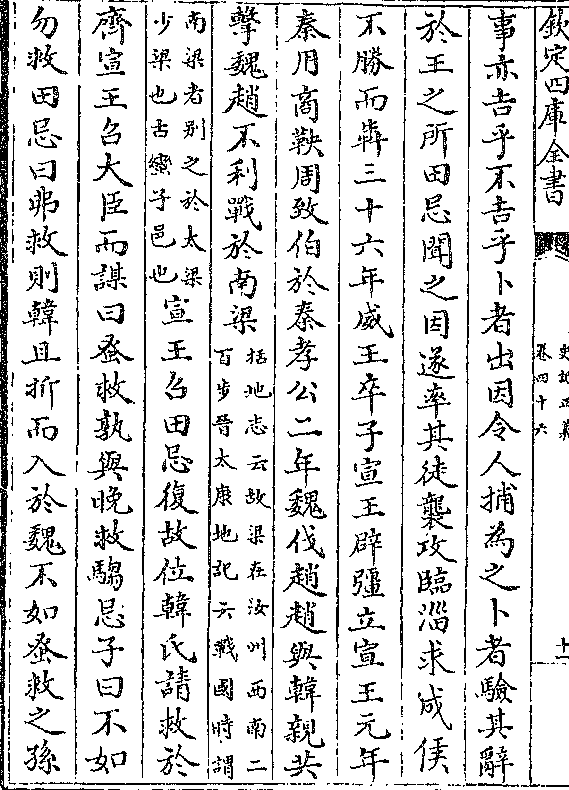 欽定四庫全書
史記正義
卷四十六
十一
事亦吉乎不吉乎卜者出因令人捕為之卜者驗其辭
於王之所田忌聞之因遂率其徒襲攻臨淄求成侯
不勝而犇三十六年威王卒子宣王辟彊立宣王元年
秦用商鞅周致伯於秦孝公二年魏伐趙趙與韓親共
擊魏趙不利戰於南梁
括地志云故梁在汝州西南二
百步晉太康地記云戰國時謂
南梁者别之於太梁
少梁也古蠻子邑也
宣王召田忌復故位韓氏請救於
齊宣王召大臣而謀曰蚤救孰與晚救騶忌子曰不如
勿救田忌曰弗救則韓且折而入於魏不如蚤救之孫